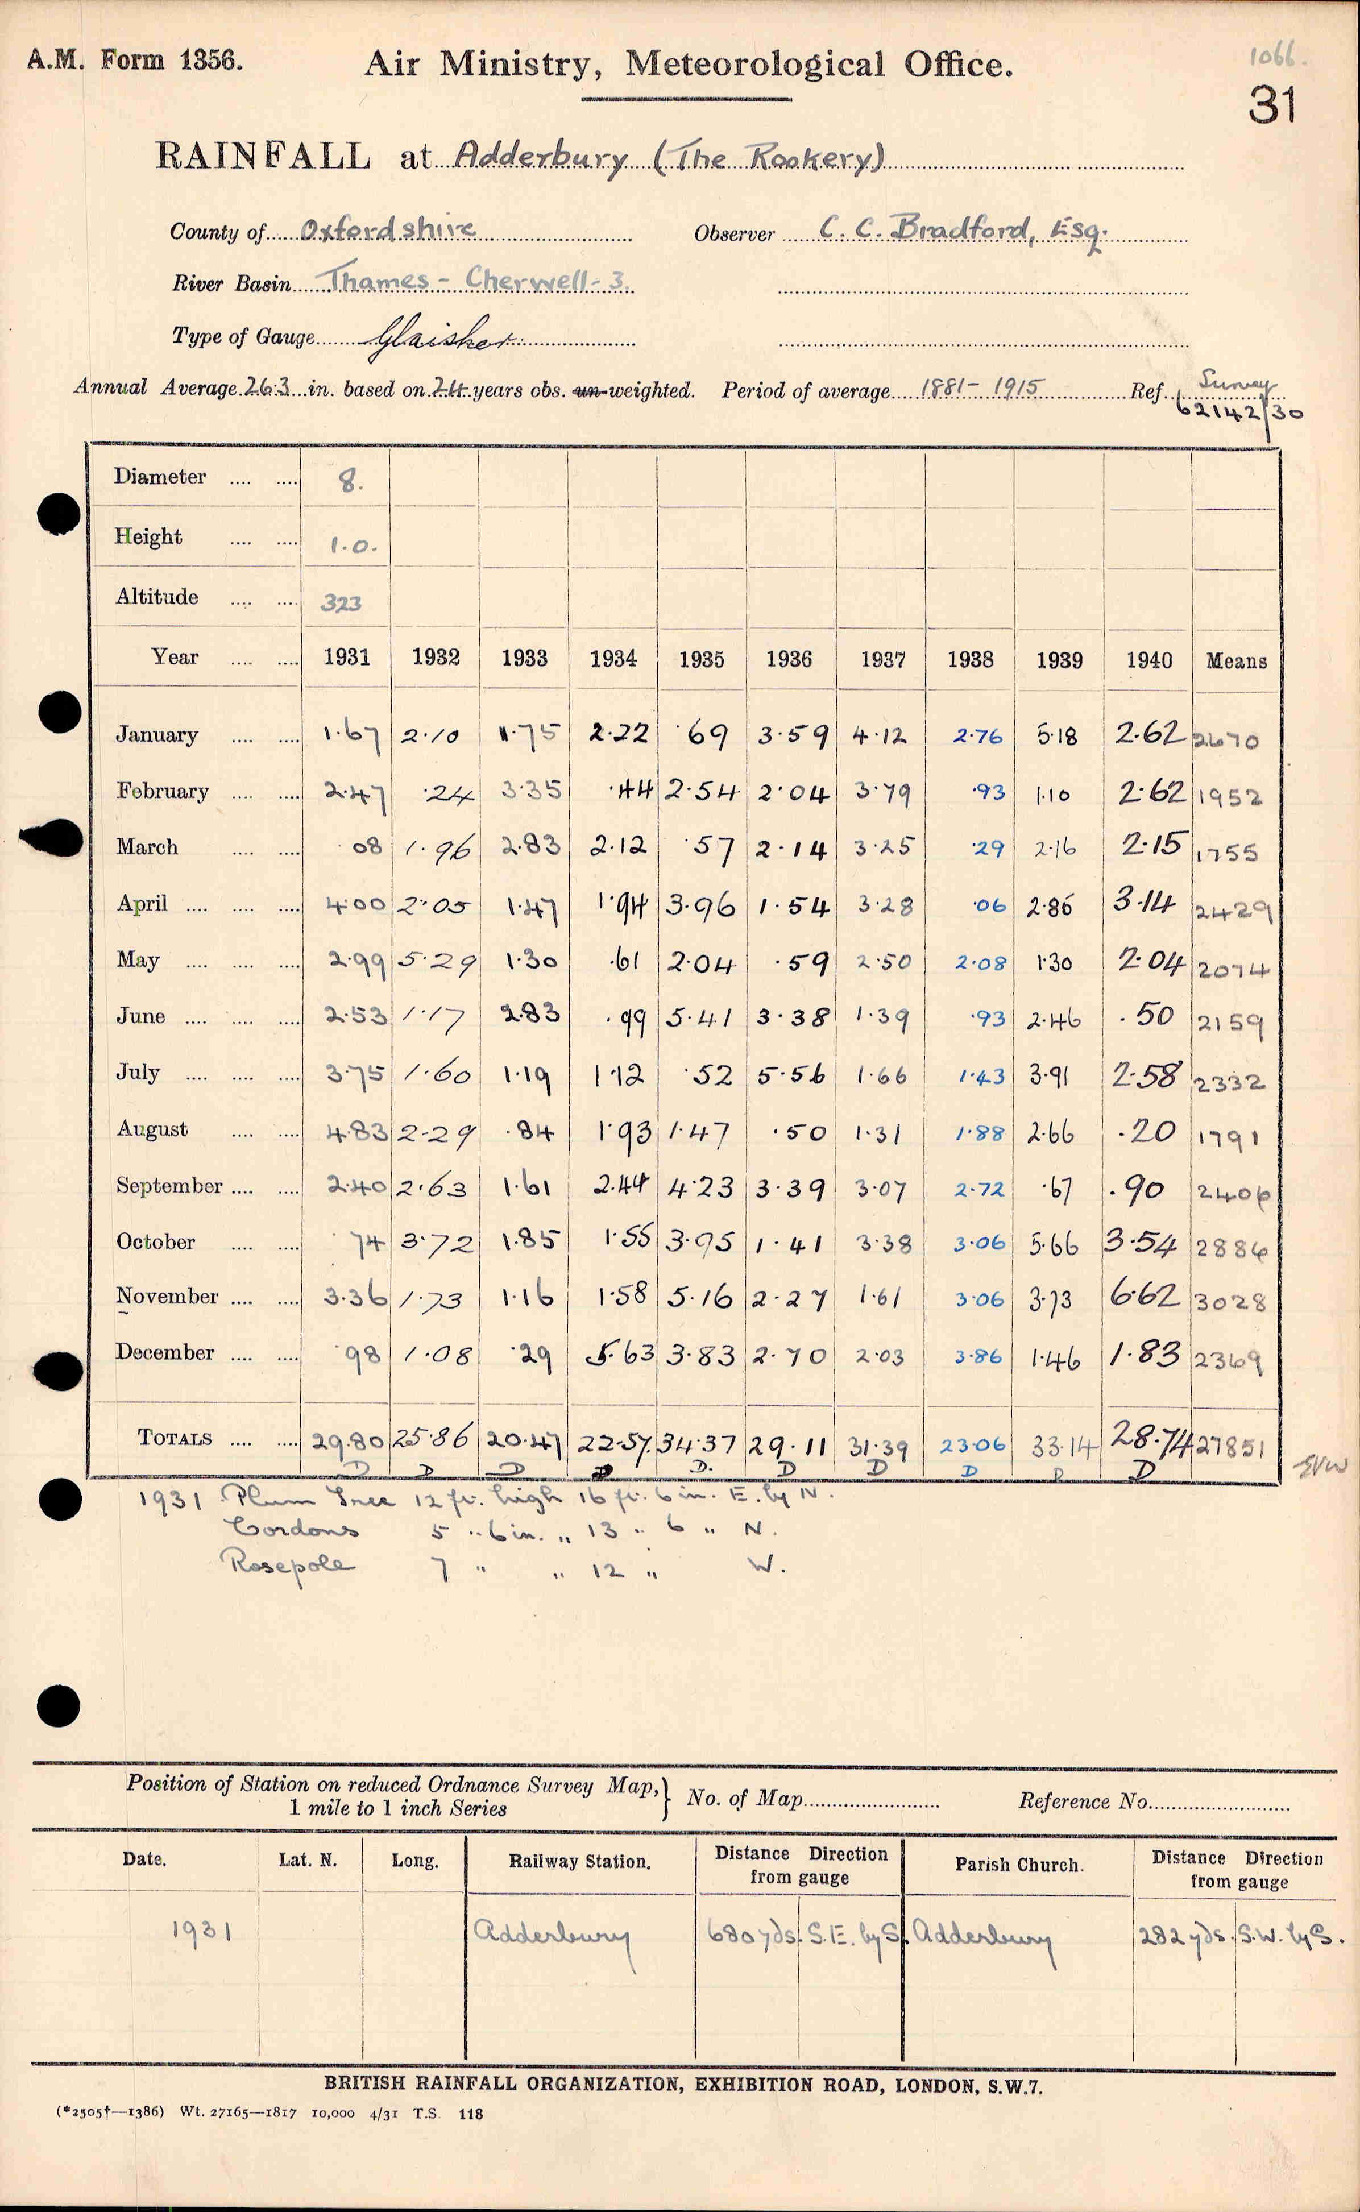 A.M. Form 1356.
Air Ministry, Meteorological Office.
1066.
31
RAINFALL at Adderbury (The Rookery)
County of Oxfordshire Observer C. C. Bradford, Esq.
River Basin Thames - Cherwell - 3.
Type of Gauge Glaisher
Annual Average 26.3 in. based on 24 years obs. un-weighted. Period of average 1881 - 1915 Ref. Survey 62142/30
Diameter .... .... 8.
Height .... .... 1.0.
Altitude .... .... 323
Year .... .... 1931 1932 1933 1934 1935 1936 1937 1938 1939 1940 Means
January .... .... 1.67 2.10 1.75 2.22 .69 3.59 4.12 2.76 5.18 2.62 2670
February .... .... 2.47 .24 3.35 .44 2.54 2.04 3.79 .93 1.10 2.62 1952
March .... .... 08 1.96 2.83 2.12 .57 2.14 3.25 .29 2.16 2.15 1755
April .... .... .... 4.00 2.05 1.47 1.94 3.96 1.54 3.28 .06 2.86 3.14 2429
May .... .... .... 2.99 5.29 1.30 .61 2.04 .59 2.50 2.08 1.30 2.04 2074
June .... .... .... 2.53 1.17 2.83 .99 5.41 3.38 1.39 .93 2.46 .50 2159
July .... .... .... 3.75 1.60 1.19 1.12 .52 5.56 1.66 1.43 3.91 2.58 2332
August .... .... 4.83 2.29 .84 1.93 1.47 .50 1.31 1.88 2.66 .20 1791
September .... .... 2.40 2.63 1.61 2.44 4.23 3.39 3.07 2.72 .67 .90 2406
October .... .... 74 3.72 1.85 1.55 3.95 1.41 3.38 3.06 5.66 3.54 2886
November .... .... 3.36 1.73 1.16 1.58 5.16 2.27 1.61 3.06 3.73 6.62 3028
December .... .... .98 1.08 .29 5.63 3.83 2.70 2.03 3.86 1.46 1.83 2369
TOTALS .... .... 29.80 25.86 20.47 22.57 34.37 29.11 31.39 23.06 33.14 28.74 27851
D D D D D. D D D D D
1931 Plum Tree 12 ft. high 16 ft. 6 in. E. by N.
Cordons 5 " 6 in. " 13 " 6 " N.
Rosepole 7 " " 12 " W.
Position of Station on reduced Ordnance Survey Map, } No. of Map Reference No.
1 mile to 1 inch Series
Date. Lat. N. Long. Railway Station. Distance Direction from gauge Parish Church. Distance Direction from gauge
1931 Adderbury 680 yds. S.E. by S. Adderbury 282 yds. S.W. by S.
BRITISH RAINFALL ORGANIZATION, EXHIBITION ROAD, LONDON, S.W.7.
(*2505†—1386) Wt. 27165—1817 10,000 4/31 T.S. 118